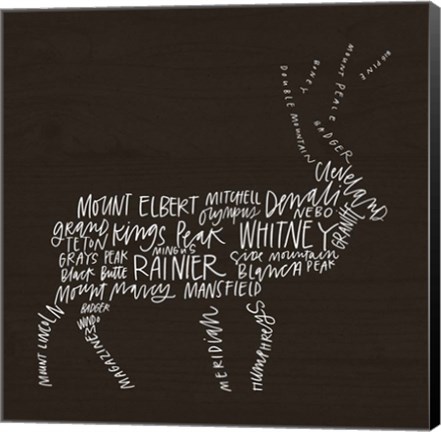 BONEY
MOUNT PEALE
ALPINE
DOUBLE MOUNTAIN
BADGER
Cleveland
MOUNT ELBERT
MITCHELL
Denali
Olympus
NEBO
GRANITE
grand
TETON
Kings Peak
WHITNEY
MINGUS
GRAYS PEAK
RAINIER
Side mountain
Black Butte
Blanca PEAK
Mount Marcy
MANSFIELD
BADGER
WINDO
MOUNT LINCOLN
MAGAZINE
MERIDIAN
Humphreys